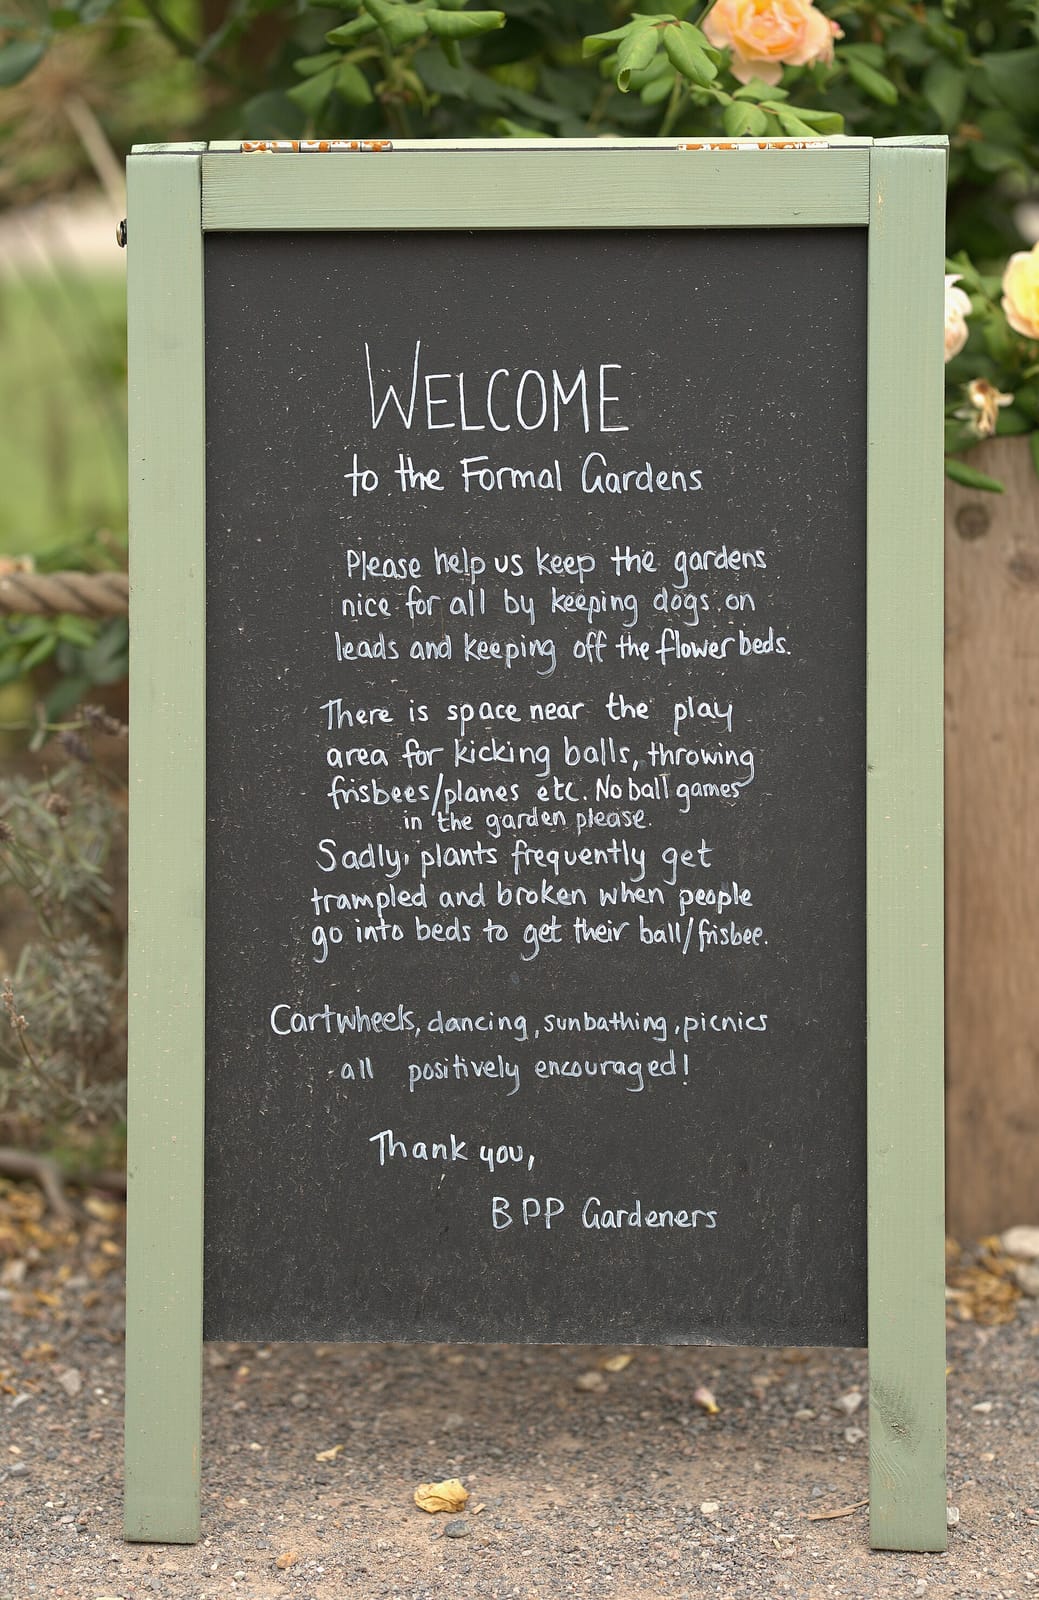 WELCOME
to the Formal Gardens
Please help us keep the gardens
nice for all by keeping dogs on
leads and keeping off the flower beds.
There is space near the play
area for kicking balls, throwing
frisbees/planes etc. No ball games
in the garden please.
Sadly, plants frequently get
trampled and broken when people
go into beds to get their ball/frisbee.
Cartwheels, dancing, sunbathing, picnics
all positively encouraged!
Thank you,
BPP Gardeners